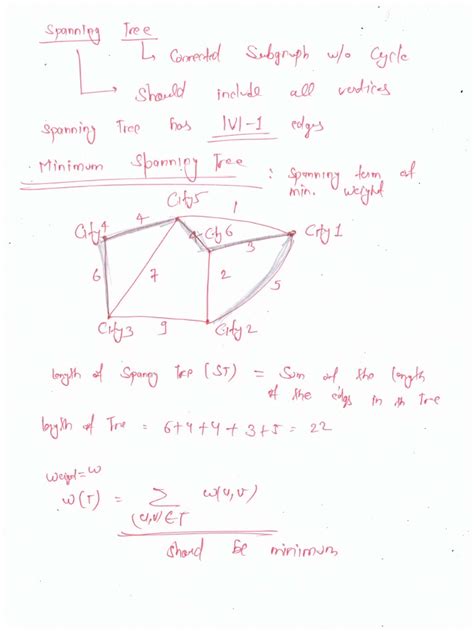 Spanning Tree
↳ Connected Subgraph w/o Cycle
↳ Should include all vertices
Spanning Tree has |V|-1 edges
Minimum Spanning Tree : Spanning term of
min. weight
City5
4
1
City4
4
City6
City1
3
6
7
2
5
City3
9
City2
length of Spaning Tree (ST) = Sum of the length
of the edges in the Tree
length of Tree = 6+4+4+3+5 = 22
Weight = W
w(T) = ∑ w(u,v)
(u,v)∈T
should be minimum